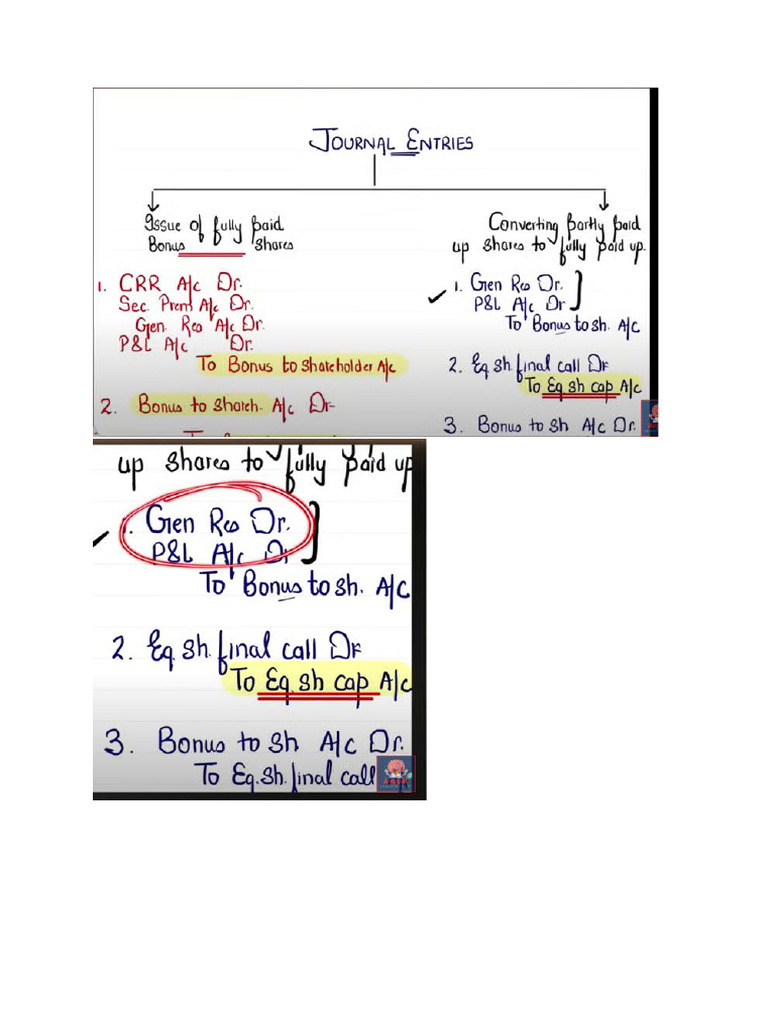 JOURNAL ENTRIES
Issue of fully paid
Bonus shares
1. CRR A/c Dr.
Sec. Prem A/c Dr.
Gen. Res A/c Dr.
P&L A/c Dr.
To Bonus to shareholder A/c
2. Bonus to shareh. A/c Dr
Converting partly paid
up shares to fully paid up.
1. Gen Res Dr.
P&L A/c Dr
To Bonus to sh. A/c
2. Eq sh. final call Dr
To Eq sh cap A/c
3. Bonus to Sh A/c Dr.
up shares to fully paid up
1. Gen Res Dr.
P&L A/c Dr
To Bonus to sh. A/c
2. Eq sh. final call Dr
To Eq. sh cap A/c
3. Bonus to Sh A/c Dr.
To Eq. Sh. final call